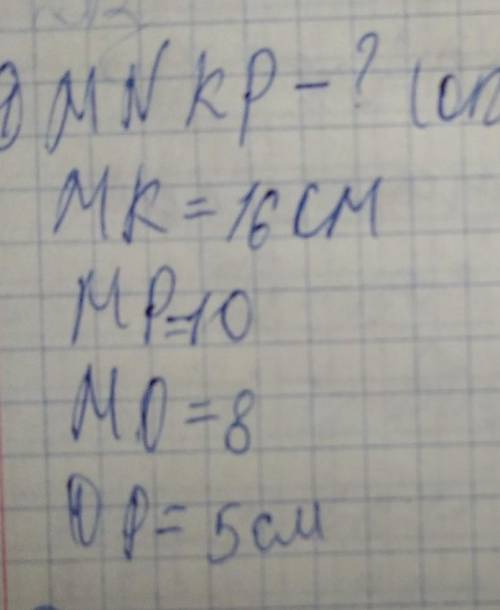 MNKP - ? (оп
MK = 16 см
MP = 10
MO = 8
OP = 5 см